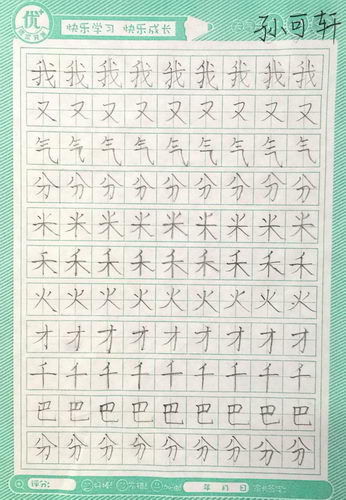 优 快乐学习 快乐成长 孙可轩
我我我我我我我我我
又又又又又又又又又
气气气气气气气气气
分分分分分分分分分
米米米米米米米米米
禾禾禾禾禾禾禾禾禾
火火火火火火火火火
才才才才才才才才才
千千千千千千千千千
巴巴巴巴巴巴巴巴巴
分分分分分分分分分
评分: 年 月 日